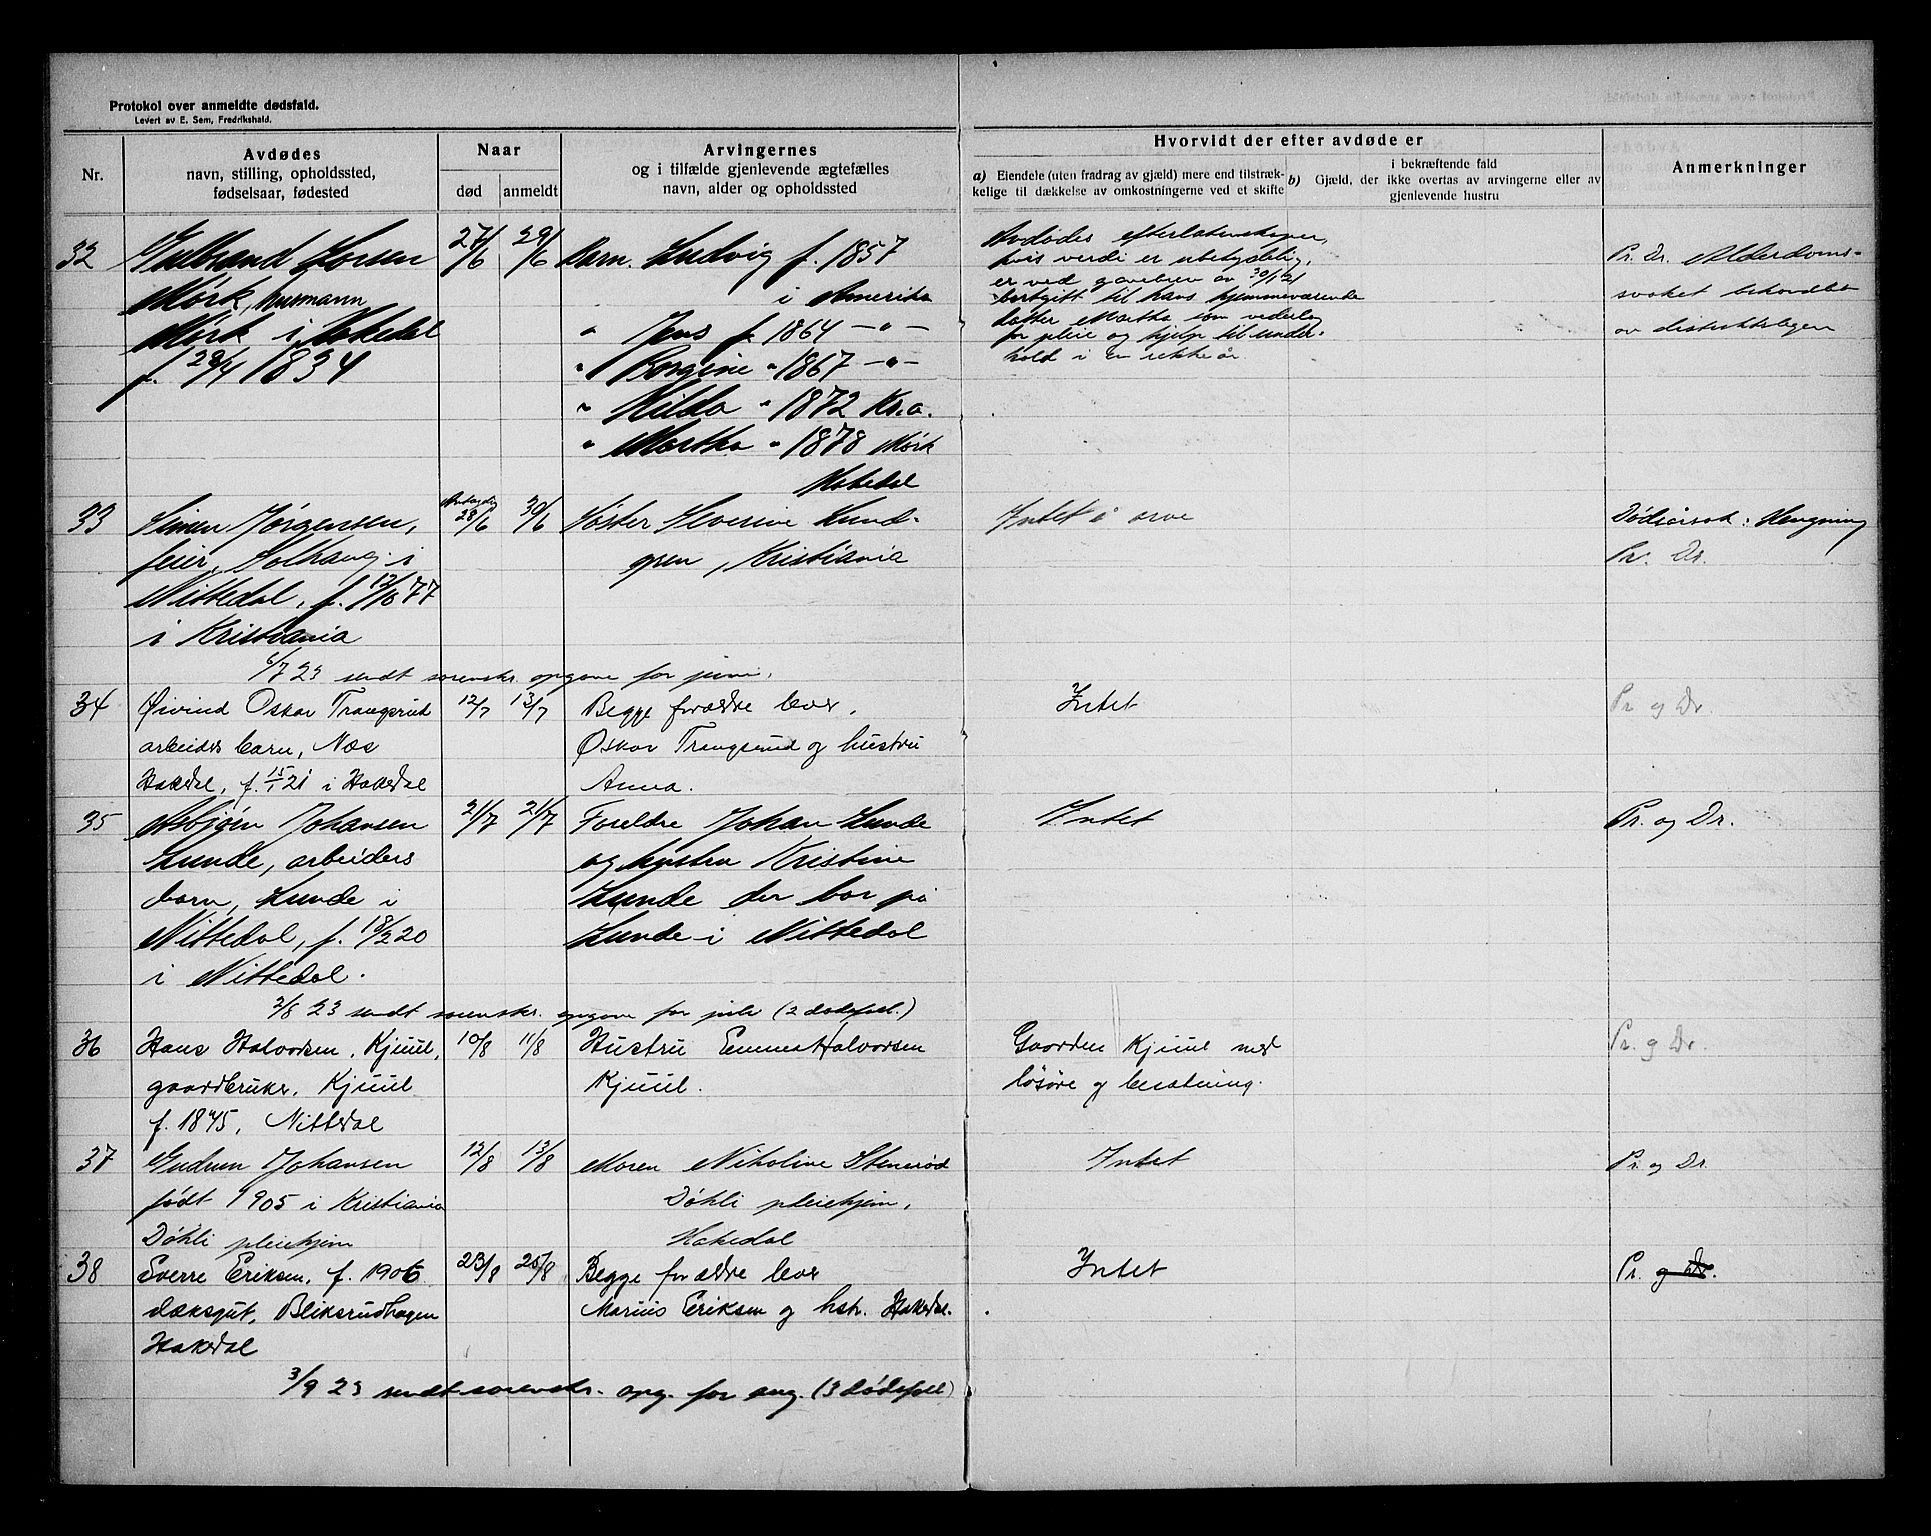 Protokol over anmeldte dødsfald.
Levert av E. Sem, Fredrikshald.
Nr.
Avdødes
navn, stilling, opholdssted,
fødselsaar, fødested
Naar
død
anmeldt
Arvingernes
og i tilfælde gjenlevende ægtefælles
navn, alder og opholdssted
Hvorvidt der efter avdøde er
a) Eiendele (uten fradrag av gjæld) mere end tilstræk-
kelige til dækkelse av omkostningerne ved et skifte
i bekræftende fald
b) Gjæld, der ikke overtas av arvingerne eller av
gjenlevende hustru
Anmerkninger
32
Gulbrand Larsen
Mørk, husmann
Mørk i Hakedal
f. 29/4 1834
27/6
29/6
Barn. Ludvig f. 1857
i Amerika
" Jens f. 1864 — " —
" Borgine " 1867 — " —
" Hilda " 1872 Kr.a.
" Martha " 1878 Mørk
Hakedal
Avdødes efterlatenskaper,
hvis verdi er ubetydelig,
er ved gavebrev av 30/1 21
bortgitt til hans hjemmeværende
datter Martha som vederlag
for pleie og hjelp til under-
hold i en rekke år
Pr. Dr. Alderdoms-
svaket behandlet
av distriktslegen
33
Simen Jørgensen,
feier, Solhaug i
Nittedal, f. 12/10 77
i Kristiania
Antagelig
28/6
30/6
Søster Severine Lund-
gren, Kristiania
Intet i arve
Dødsårsak: Hengning
Pr. Dr.
6/7 23 sendt sorenskr. opgave for juni.
34
Øivind Oskar Trangsrud
arbeiders barn, Næs
Hakedal, f. 15/1 21 i Hakedal
12/7
13/7
Begge forældre lever,
Oskar Trangsrud og hustru
Anna.
Intet
Pr og Dr.
35
Asbjørn Johansen
Lunde, arbeiders
barn, Lunde i
Nittedal, f. 18/2 20
i Nittedal.
21/7
21/7
Foreldre Johan Lunde
og hustru Kristine
Lunde der bor på
Lunde i Nittedal
Intet
Pr. og Dr.
2/8 23 sendt sorenskr. opgave for juli (2 dødsfal.)
36
Hans Halvorsen, Kjuul,
gaardbruker, Kjuul
f. 1845, Nittedal
10/8
11/8
Hustru Emma Halvorsen
Kjuul.
Gaarden Kjuul med
løsøre og besætning.
Pr. og Dr.
37
Gudrun Johansen
født 1905 i Kristiania
Døhli pleiehjem
12/8
13/8
Moren Nikoline Stenerød
Døhli pleiehjem,
Hakedal
Intet
Pr. og Dr.
38
Sverre Eriksen, f. 1906
Bliksrudhagen
Hakedal
23/8
25/8
Begge forældre lever
Marius Eriksen og hstr. Hakedal.
Intet
Pr. og Dr.
3/9 23 sendt sorenskr. opg. for aug. (3 dødsfall)